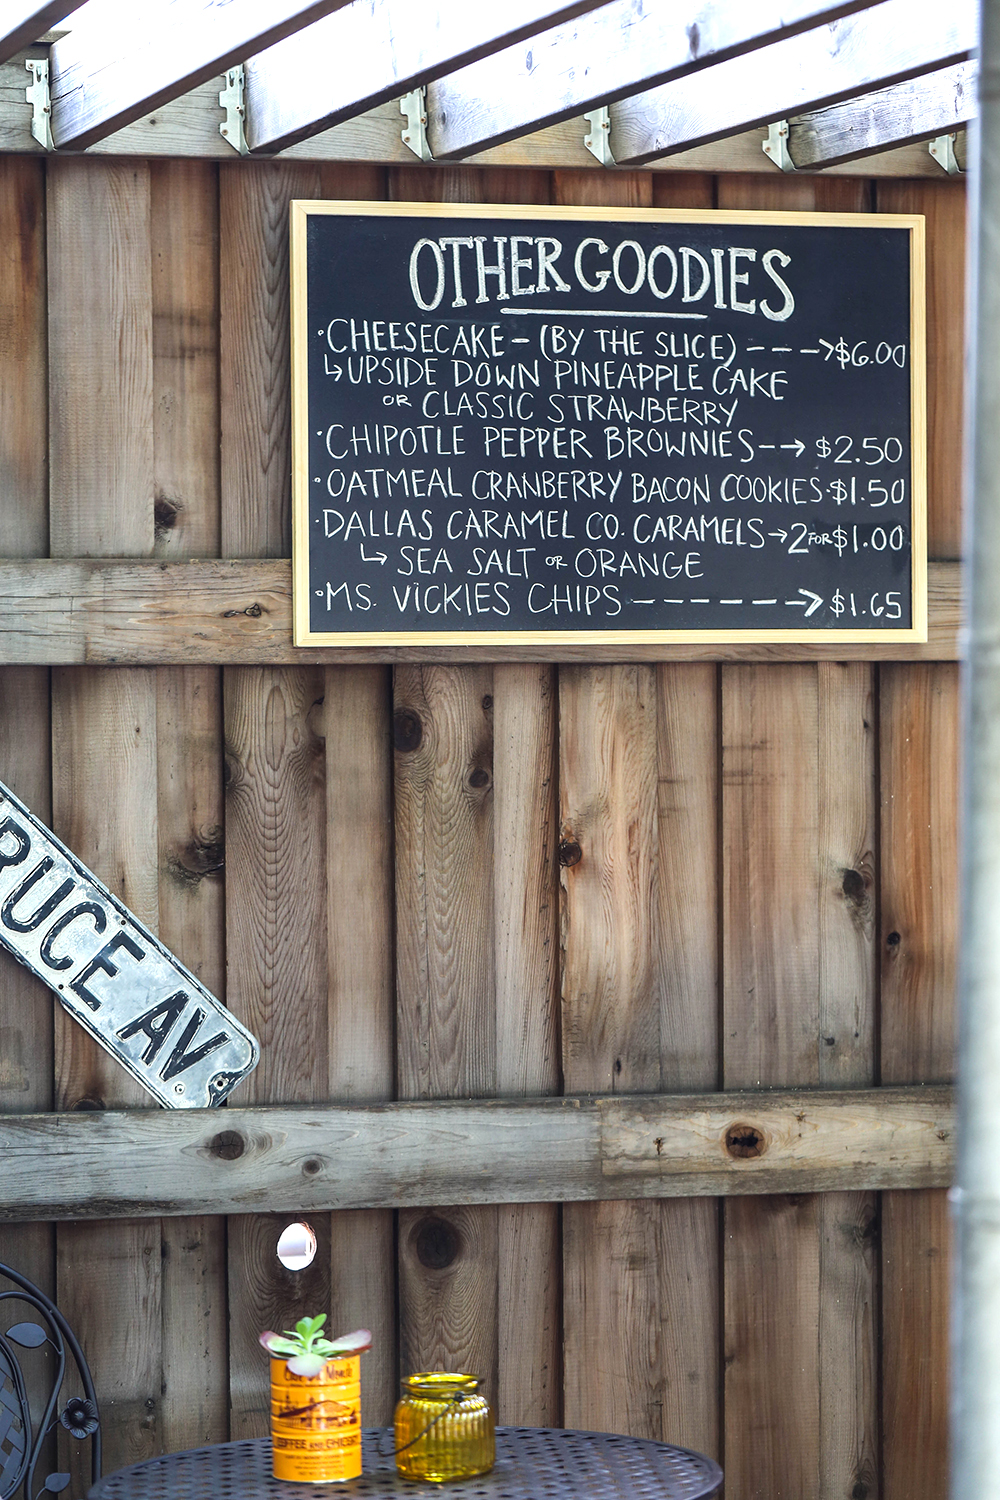 OTHER GOODIES
·CHEESECAKE - (BY THE SLICE) - - -> $6.00
↳UPSIDE DOWN PINEAPPLE CAKE
OR CLASSIC STRAWBERRY
·CHIPOTLE PEPPER BROWNIES - -> $2.50
·OATMEAL CRANBERRY BACON COOKIES·$1.50
·DALLAS CARAMEL CO. CARAMELS -> 2 FOR $1.00
↳ SEA SALT OR ORANGE
·MS. VICKIES CHIPS - - - - - - -> $1.65
RUCE AV
COFFEE AND CHICORY